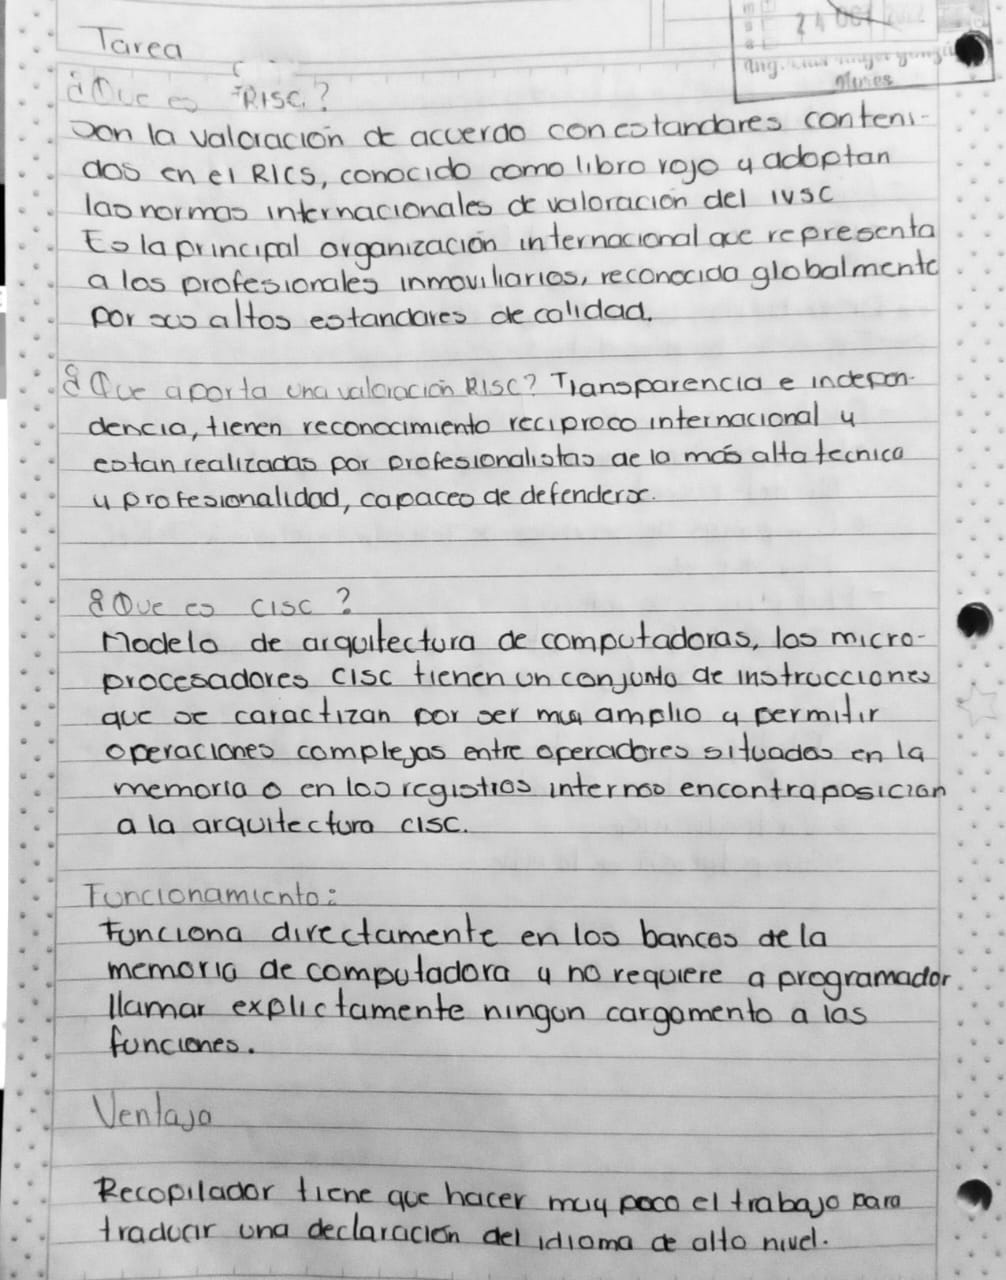 Tarea
24 OCT
¿Que es RISC?
Son la valoración de acuerdo con estandares conteni-
dos en el RICS, conocido como libro rojo y adoptan
las normas internacionales de valoración del IVSC
Es la principal organización internacional que representa
a los profesionales inmoviliarios, reconocida globalmente
por sus altos estandares de calidad.
¿Que aporta una valoración RISC? Transparencia e indepen-
dencia, tienen reconocimiento reciproco internacional y
estan realizadas por profesionalistas de la más alta tecnica
y profesionalidad, capaces de defenderse.
¿Que es CISC?
Modelo de arquitectura de computadoras, los micro-
procesadores CISC tienen un conjunto de instrucciones
que se caractizan por ser muy amplio y permitir
operaciones complejas entre operadores situados en la
memoria o en los registros internos encontraposición
a la arquitectura CISC.
Funcionamiento:
Funciona directamente en los bancos de la
memoria de computadora y no requiere a programador
llamar explictamente ningun cargamento a las
funciones.
Ventaja
Recopilador tiene que hacer muy poco el trabajo para
traducir una declaración del idioma de alto nivel.